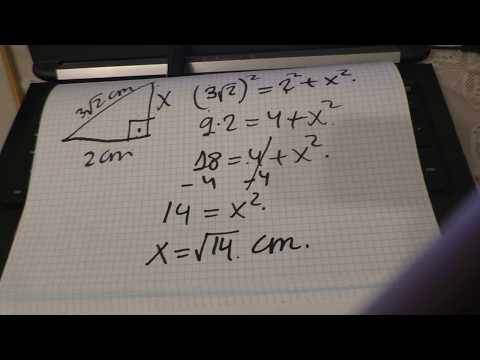 3√2 cm
x
2 cm
(3√2)² = 2² + x².
9·2 = 4 + x²
18 = 4 + x².
-4 -4
14 = x².
x = √14. cm.